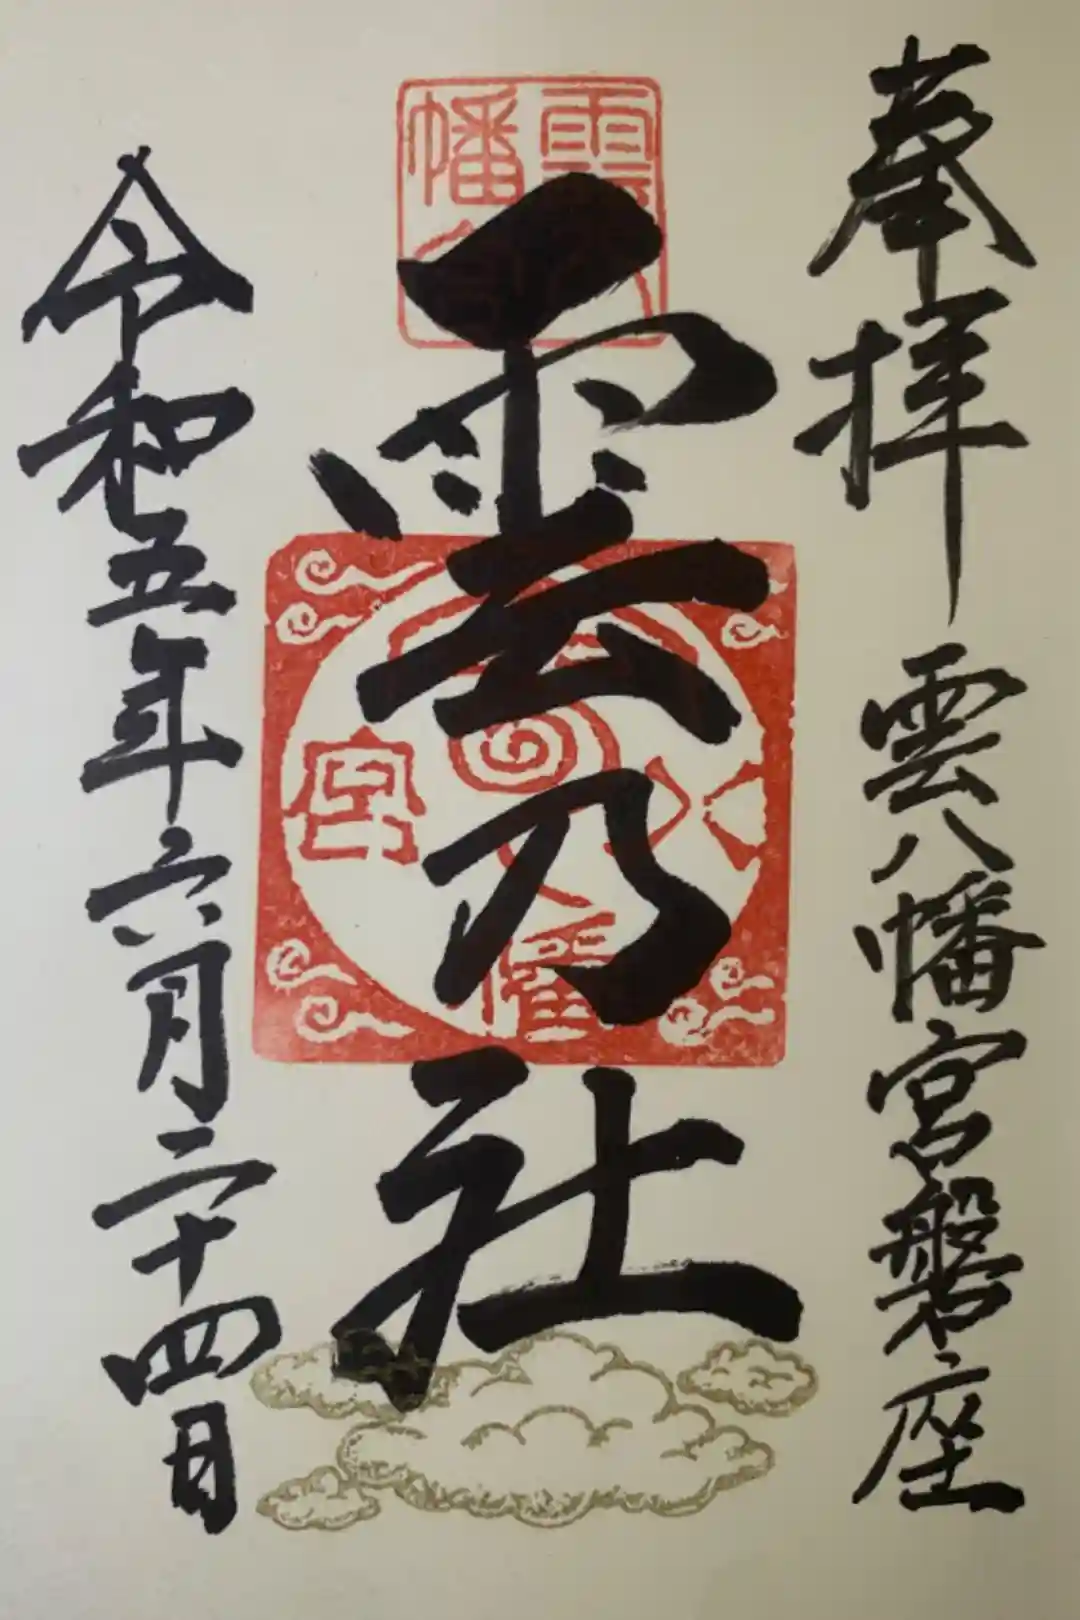 奉拝 雲八幡宮磐座
雲乃社
令和五年六月二十四日
雲八
幡宮
八
幡
宮